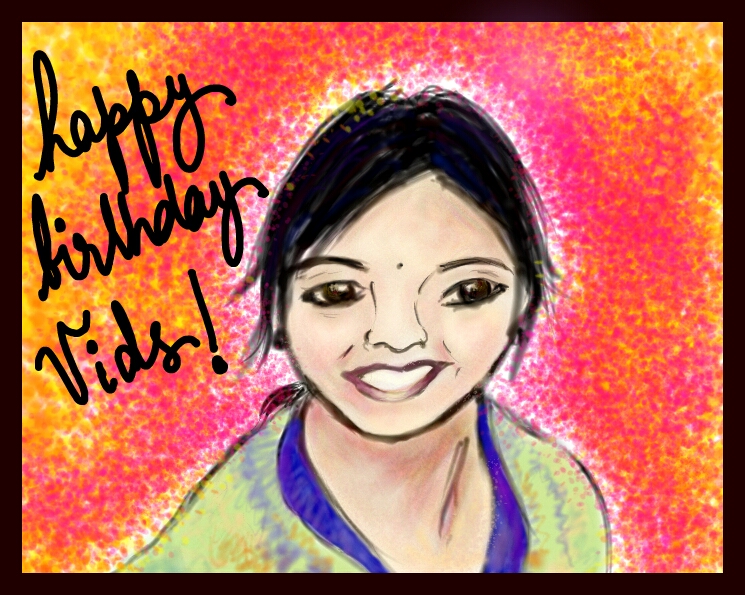 happy
birthday
Vids!